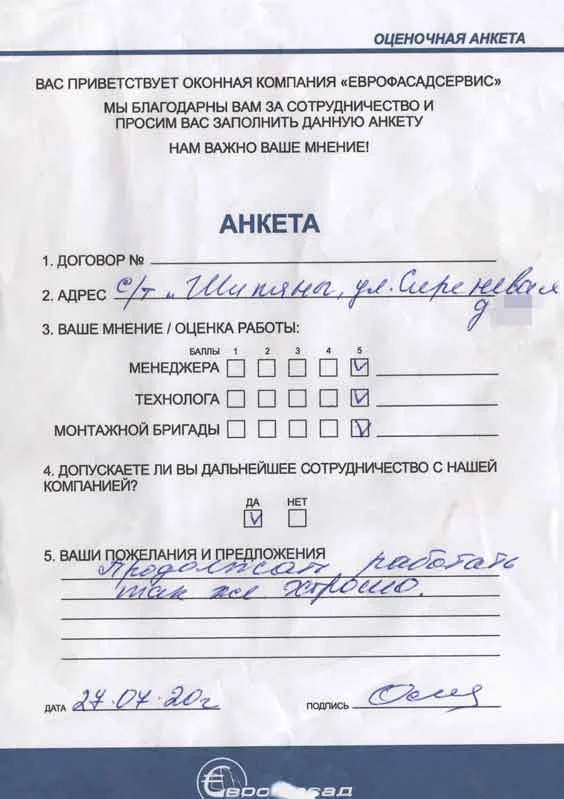 ОЦЕНОЧНАЯ АНКЕТА
ВАС ПРИВЕТСТВУЕТ ОКОННАЯ КОМПАНИЯ «ЕВРОФАСАДСЕРВИС»
МЫ БЛАГОДАРНЫ ВАМ ЗА СОТРУДНИЧЕСТВО И
ПРОСИМ ВАС ЗАПОЛНИТЬ ДАННУЮ АНКЕТУ
НАМ ВАЖНО ВАШЕ МНЕНИЕ!
АНКЕТА
1. ДОГОВОР №
2. АДРЕС с/т „Шипяны, ул. Сиреневая
д
3. ВАШЕ МНЕНИЕ / ОЦЕНКА РАБОТЫ:
БАЛЛЫ 1 2 3 4 5
МЕНЕДЖЕРА
ТЕХНОЛОГА
МОНТАЖНОЙ БРИГАДЫ
4. ДОПУСКАЕТЕ ЛИ ВЫ ДАЛЬНЕЙШЕЕ СОТРУДНИЧЕСТВО С НАШЕЙ
КОМПАНИЕЙ?
ДА НЕТ
5. ВАШИ ПОЖЕЛАНИЯ И ПРЕДЛОЖЕНИЯ
Продолжать работать
так же хорошо.
ДАТА 27.07.20г ПОДПИСЬ